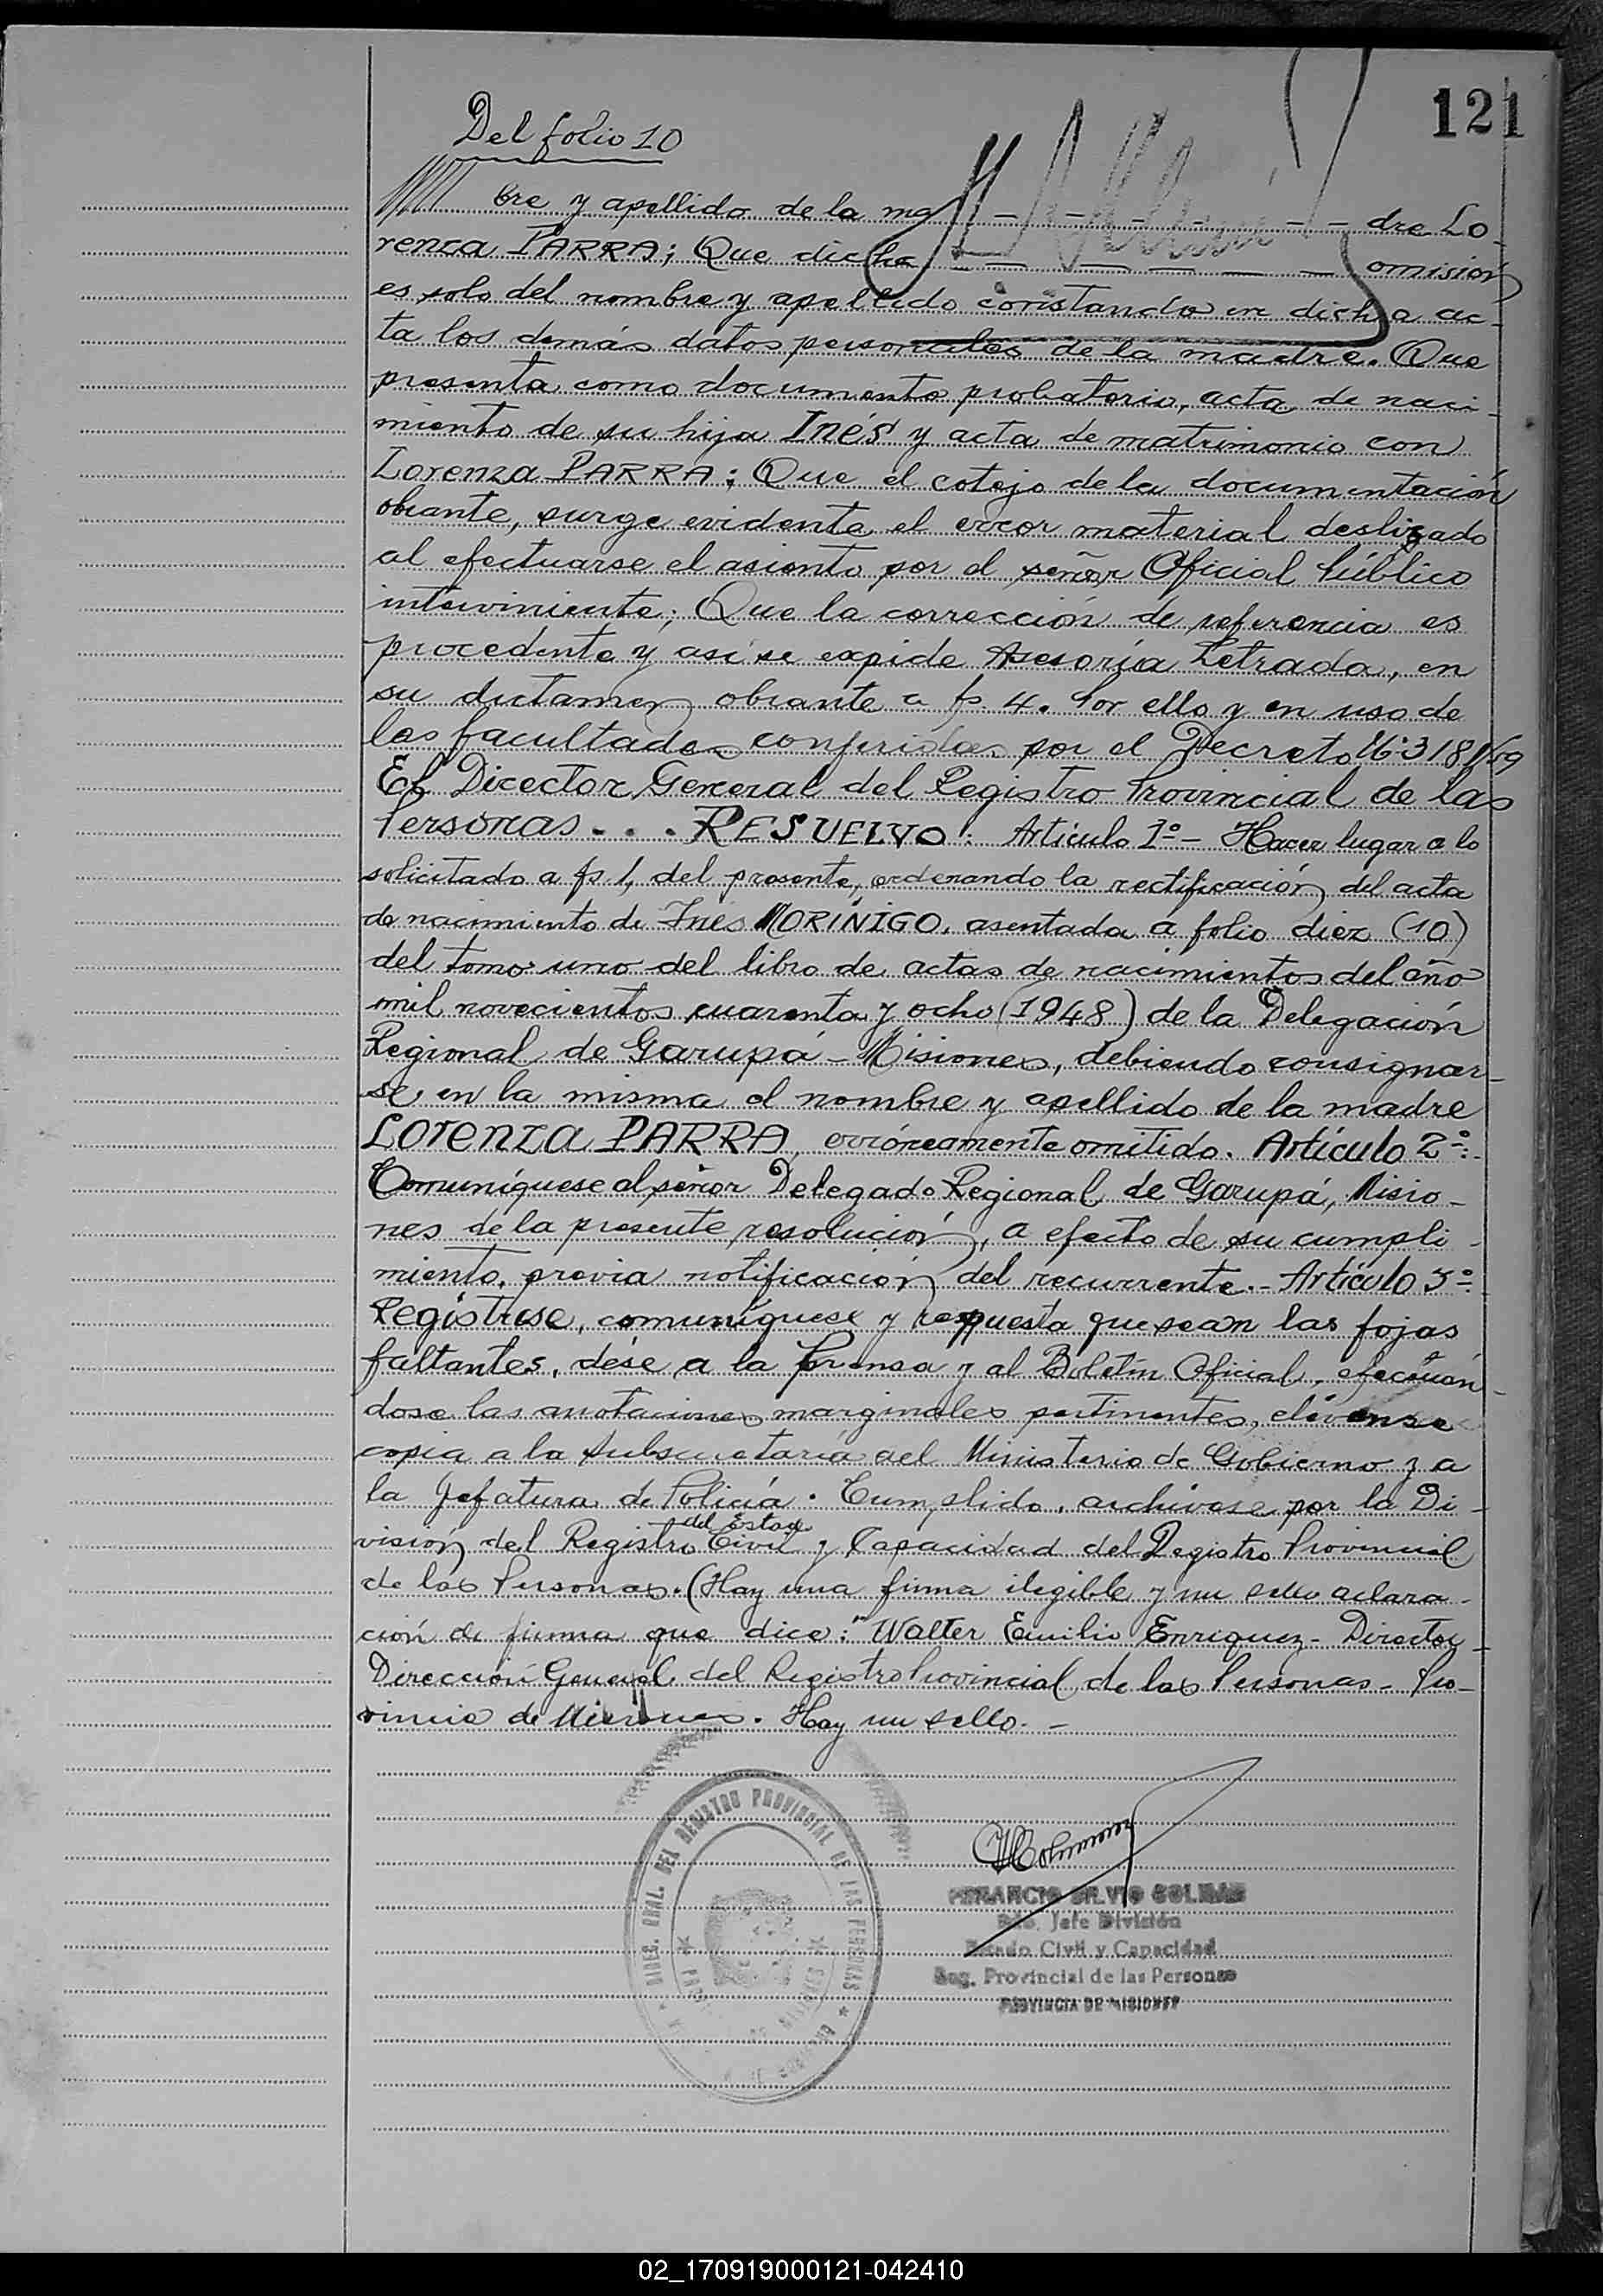 121
Del folio 10
bre y apellido de la ma - - - - - dre Lo-
renza PARRA; Que dicha - - - - - omisión
es solo del nombre y apellido constando en dicha ac-
ta los demás datos personales de la madre. Que
presenta como documento probatorio, acta de naci-
miento de su hija Inés y acta de matrimonio con
Lorenza PARRA; Que el cotejo de la documentación
obrante, surge evidente el error material deslizado
al efectuarse el asiento por el señor Oficial Público
interviniente; Que la corrección de referencia es
procedente y así se expide Asesoría Letrada, en
su dictamen obrante a fs. 4. Por ello y en uso de
las facultades conferidas por el Decreto Nº 3181/59
El Director General del Registro Provincial de las
Personas... RESUELVO: Artículo 1º- Hacer lugar a lo
solicitado a fs 1, del presente, ordenando la rectificación del acta
de nacimiento de Inés MORINIGO, asentada a folio diez (10)
del tomo uno del libro de actas de nacimientos del año
mil novecientos cuarenta y ocho (1948) de la Delegación
Regional de Garupá - Misiones, debiendo consignar-
se en la misma el nombre y apellido de la madre
LORENZA PARRA, erróneamente omitido. Artículo 2º:-
Comuníquese al señor Delegado Regional de Garupá, Misio-
nes de la presente resolución, a efecto de su cumpli-
miento, previa notificación del recurrente.- Artículo 3º:
Regístrese, comuníquese y repuesta que sean las fojas
faltantes, dése a la Prensa y al Boletín Oficial, efectuán-
dose las anotaciones marginales pertinentes, elévense
copia a la Subsecretaría del Ministerio de Gobierno y a
la Jefatura de Policía. Cumplido, archívese por la Di-
del Estado
visión del Registro Civil y Capacidad del Registro Provincial
de las Personas. (Hay una firma ilegible y un sello aclara-
ción de firma que dice: "Walter Emilio Enriquez- Director-
Dirección General del Registro Provincial de las Personas - Pro-
vincia de Misiones. Hay un sello. -
DIREC. GRAL. DEL REGISTRO PROVINCIAL DE LAS PERSONAS
SILVIO
Jefe División
Estado Civil y Capacidad
Reg. Provincial de las Personas
PROVINCIA DE MISIONES
02_170919000121-042410